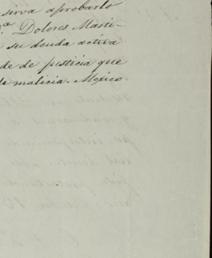 sirva aprobarlo
D.ª Dolores Masti-
su deuda activa
de de justicia que
da malicia. Mexico